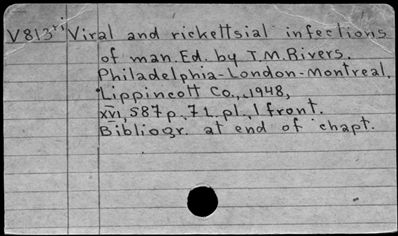 V813ri Viral and rickettsial infections
of man. Ed. by T.M.Rivers.
Philadelphia-London-Montreal,
Lippincott Co., 1948,
XVI, 587 p., 7 L. pl., 1 front.
Bibliogr. at end of chapt.